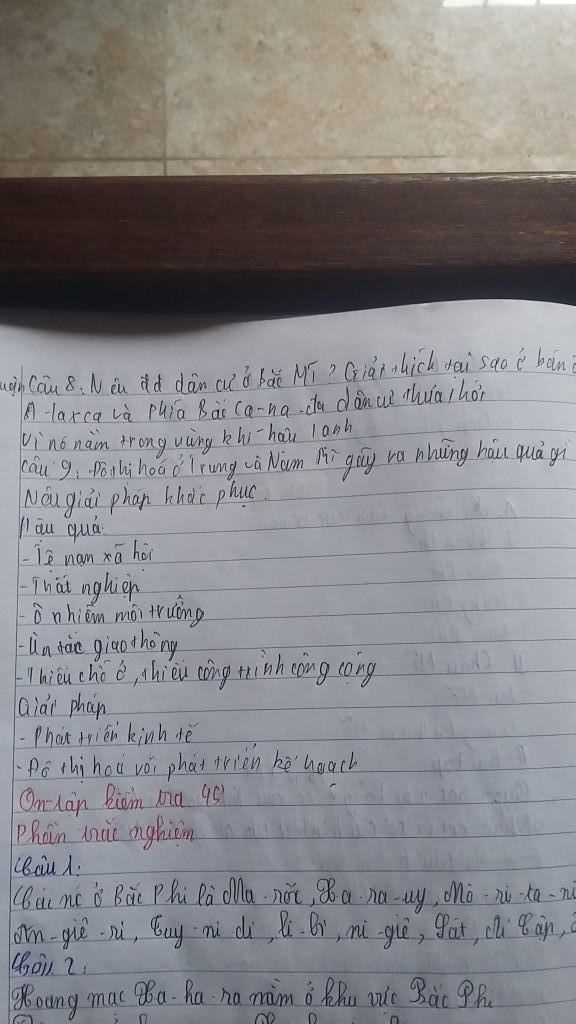 Câu 8: Nêu đđ dân cư ở Bắc Mĩ? Giải thích tại sao ở bán
A-laxca và phía Bắc Ca-na-đa dân cư thưa thớt
Vì nó nằm trong vùng khí hậu lạnh
Câu 9: Đô thị hoá ở Trung và Nam Mĩ gây ra những hậu quả gì
Nêu giải pháp khắc phục.
Hậu quả:
- Tệ nạn xã hội
- Thất nghiệp
- Ô nhiễm môi trường
- Ùn tắc giao thông
- Thiếu chỗ ở, thiếu công trình công cộng
Giải pháp
- Phát triển kinh tế
- Đô thị hoá với phát triển kế hoạch
Ôn tập kiểm tra 45'
Phần trắc nghiệm
Câu 1:
Các nc ở Bắc Phi là Ma-rốc, Xa-ra-uy, Mô-ri-ta-ni
An-giê-ri, Tuy-ni di, li-bi, ni-giê, Sát, Ai Cập,
Câu 2:
Hoang mạc Xa-ha-ra nằm ở khu vực Bắc Phi